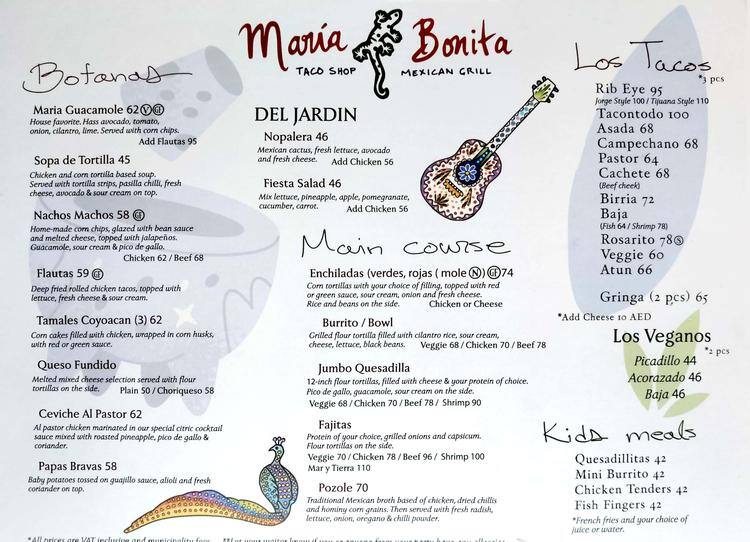 María Bonita
TACO SHOP MEXICAN GRILL
Botanas
Maria Guacamole 62 V GF
House favorite. Hass avocado, tomato,
onion, cilantro, lime. Served with corn chips.
Add Flautas 95
Sopa de Tortilla 45
Chicken and corn tortilla based soup.
Served with tortilla strips, pasilla chilli, fresh
cheese, avocado & sour cream on top.
Nachos Machos 58 GF
Home-made corn chips, glazed with bean sauce
and melted cheese, topped with jalapeños.
Guacamole, sour cream & pico de gallo.
Chicken 62 / Beef 68
Flautas 59 GF
Deep fried rolled chicken tacos, topped with
lettuce, fresh cheese & sour cream.
Tamales Coyoacan (3) 62
Corn cakes filled with chicken, wrapped in corn husks,
with red or green sauce.
Queso Fundido
Melted mixed cheese selection served with flour
tortillas on the side. Plain 50 / Choriqueso 58
Ceviche Al Pastor 62
Al pastor chicken marinated in our special citric cocktail
sauce mixed with roasted pineapple, pico de gallo &
coriander.
Papas Bravas 58
Baby potatoes tossed on guajillo sauce, alioli and fresh
coriander on top.
DEL JARDIN
Nopalera 46
Mexican cactus, fresh lettuce, avocado
and fresh cheese. Add Chicken 56
Fiesta Salad 46
Mix lettuce, pineapple, apple, pomegranate,
cucumber, carrot. Add Chicken 56
Main course
Enchiladas (verdes, rojas ( mole N) GF 74
Corn tortillas with your choice of filling, topped with red
or green sauce, sour cream, onion and fresh cheese.
Rice and beans on the side. Chicken or Cheese
Burrito / Bowl
Grilled flour tortilla filled with cilantro rice, sour cream,
cheese, lettuce, black beans. Veggie 68 / Chicken 70 / Beef 78
Jumbo Quesadilla
12-inch flour tortillas, filled with cheese & your protein of choice.
Pico de gallo, guacamole, sour cream on the side.
Veggie 68 / Chicken 70 / Beef 78 / Shrimp 90
Fajitas
Protein of your choice, grilled onions and capsicum.
Flour tortillas on the side.
Veggie 70 / Chicken 78 / Beef 96 / Shrimp 100
Mar y Tierra 110
Pozole 70
Traditional Mexican broth based of chicken, dried chillis
and hominy corn grains. Then served with fresh radish,
lettuce, onion, oregano & chilli powder.
Los Tacos
*3 pcs
Rib Eye 95
Jorge Style 100 / Tijuana Style 110
Tacontodo 100
Asada 68
Campechano 68
Pastor 64
Cachete 68
(Beef cheek)
Birria 72
Baja
(Fish 64 / Shrimp 78)
Rosarito 78 S
Veggie 60
Atun 66
Gringa (2 pcs) 65
*Add Cheese 10 AED
Los Veganos
*2 pcs
Picadillo 44
Acorazado 46
Baja 46
Kids meals
Quesadillitas 42
Mini Burrito 42
Chicken Tenders 42
Fish Fingers 42
*French fries and your choice of
juice or water.
*All prices are VAT inclusive and municipality fees